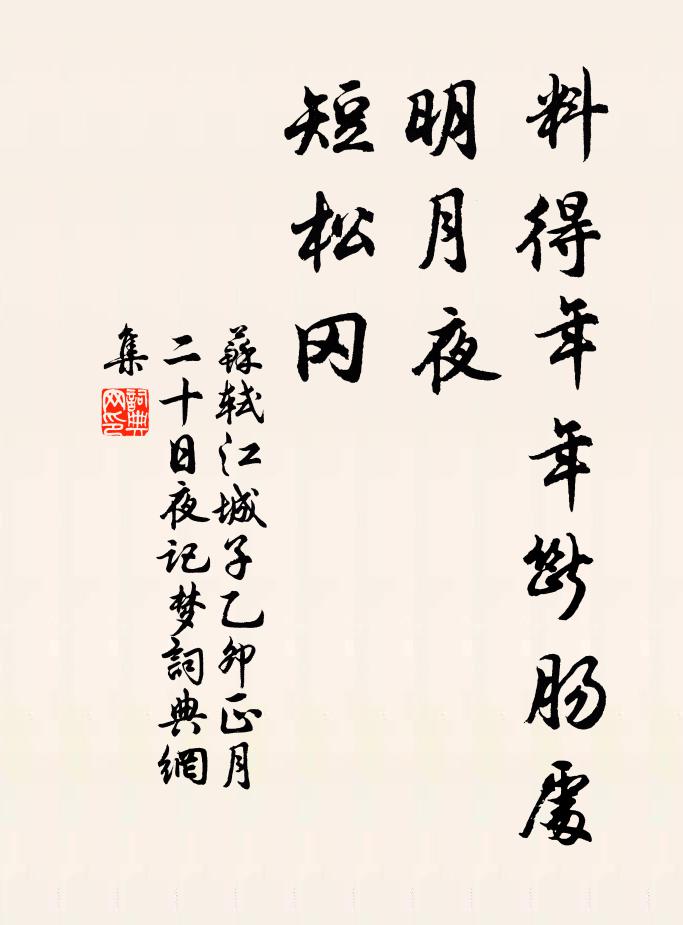 料得年年斷肠處
明月夜
短松冈
蘇轼江城子乙卯正月
二十日夜记梦詞典網
集
詞典
网印